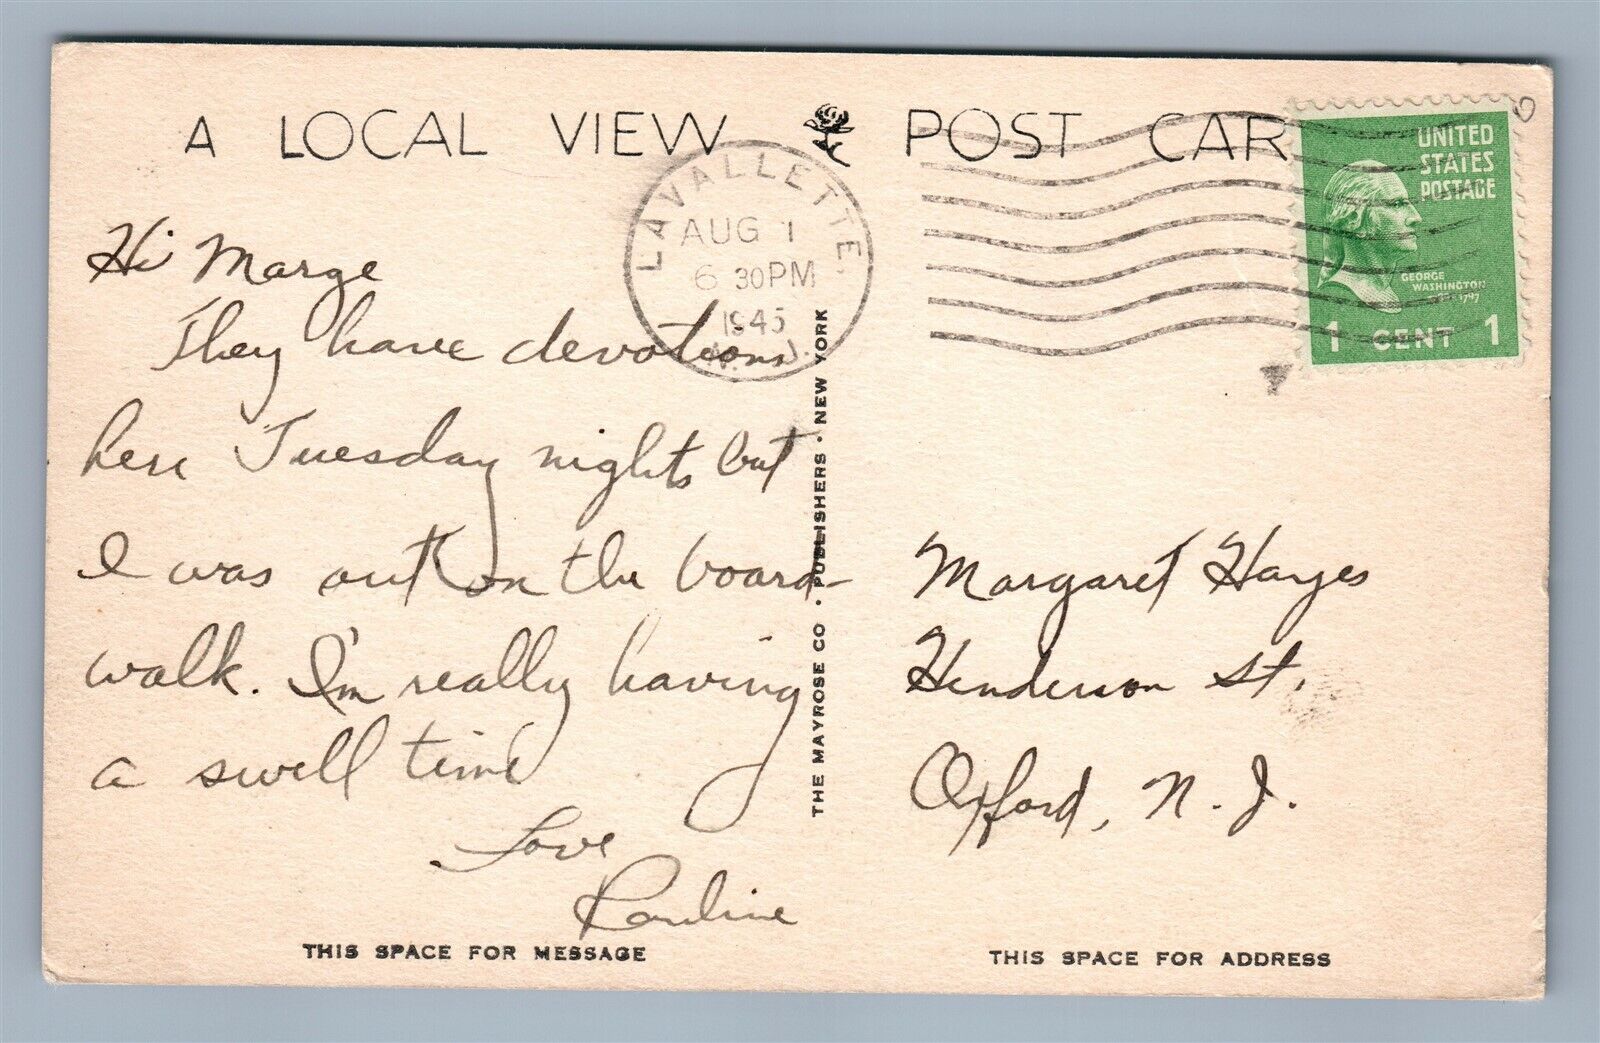 A LOCAL VIEW POST CAR
LAVALLETTE,
AUG 1
6 30PM
1945
N.J.
UNITED
STATES
POSTAGE
GEORGE
WASHINGTON
1797
1 CENT 1
Hi Marge
They have devotions
here Tuesday nights but
I was out on the board-
walk. I'm really having
a swell time
Love
Pauline
THIS SPACE FOR MESSAGE
THE MAYROSE CO. PUBLISHERS · NEW YORK
Margaret Hayes
Henderson St.
Oxford, N. J.
THIS SPACE FOR ADDRESS